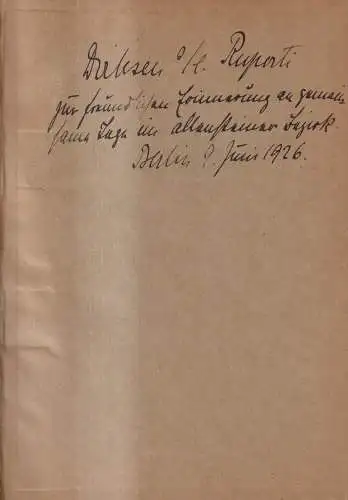 Dirksen s/l. Ruperti
zur freundlichen Erinnerung an gemein
same Tage im allensteiner Bezirk.
Berlin 9. Juni 1926.